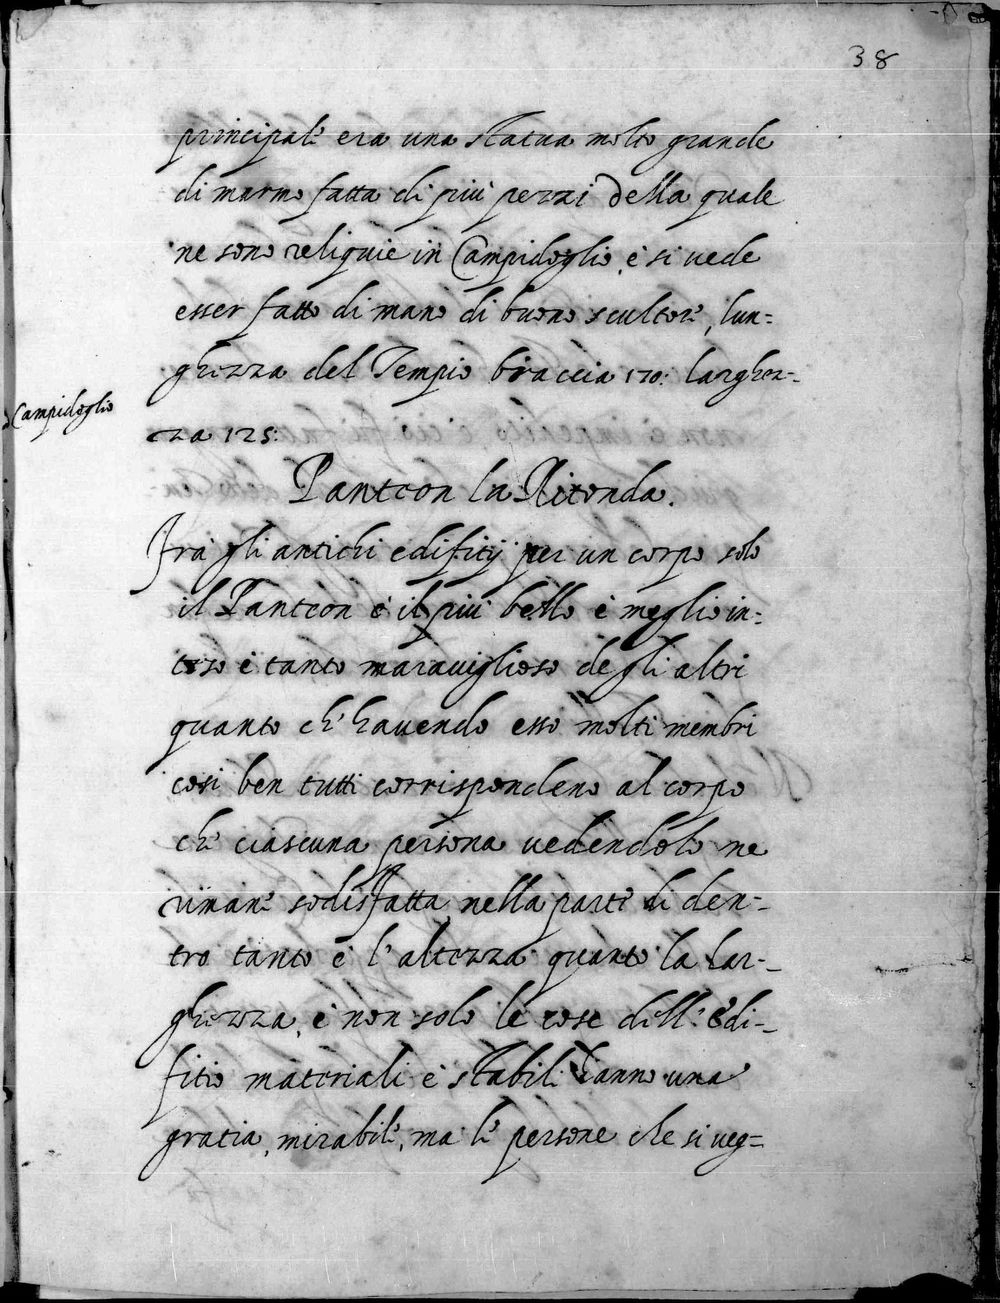 38
principale era una statua molto grande
di marmo fatta di più pezzi della quale
ne sono reliquie in Campidoglio, è si uede
esser fatto di mano di buono scultore, lun=
ghezza del Tempio braccia 170: larghez=
Campidoglio
za 125:
Panteon la Ritonda.
Frà gli antichi edifitij per un corpo solo
il Panteon è il più bello è meglio in=
teso è tanto marauiglioso de gli altri
quanto ch'hauendo esso molti membri
cosi ben tutti corrispondeno al corpo
che ciascuna persona uedendolo ne
rimane sodisfatta nella parte di den=
tro tanto è l'altezza quanto la lar=
ghezza, è non solo le cose dell'Edi=
fitio materiali è stabili danno una
gratia, mirabile, ma le persone che si ueg=